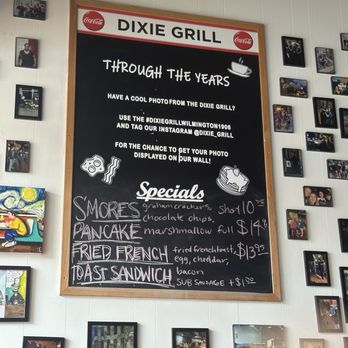 Coca-Cola DIXIE GRILL Coca-Cola
THROUGH THE YEARS
HAVE A COOL PHOTO FROM THE DIXIE GRILL?
USE THE #DIXIEGRILLWILMINGTON1906
AND TAG OUR INSTAGRAM @DIXIE_GRILL
FOR THE CHANCE TO GET YOUR PHOTO
DISPLAYED ON OUR WALL!
Specials
S'MORES graham crackers, short 10
PANCAKE chocolate chips, marshmallow full $14
FRIED FRENCH fried french toast, $13.95
TOAST SANDWICH egg, cheddar, bacon
SUB SAUSAGE + $1.50